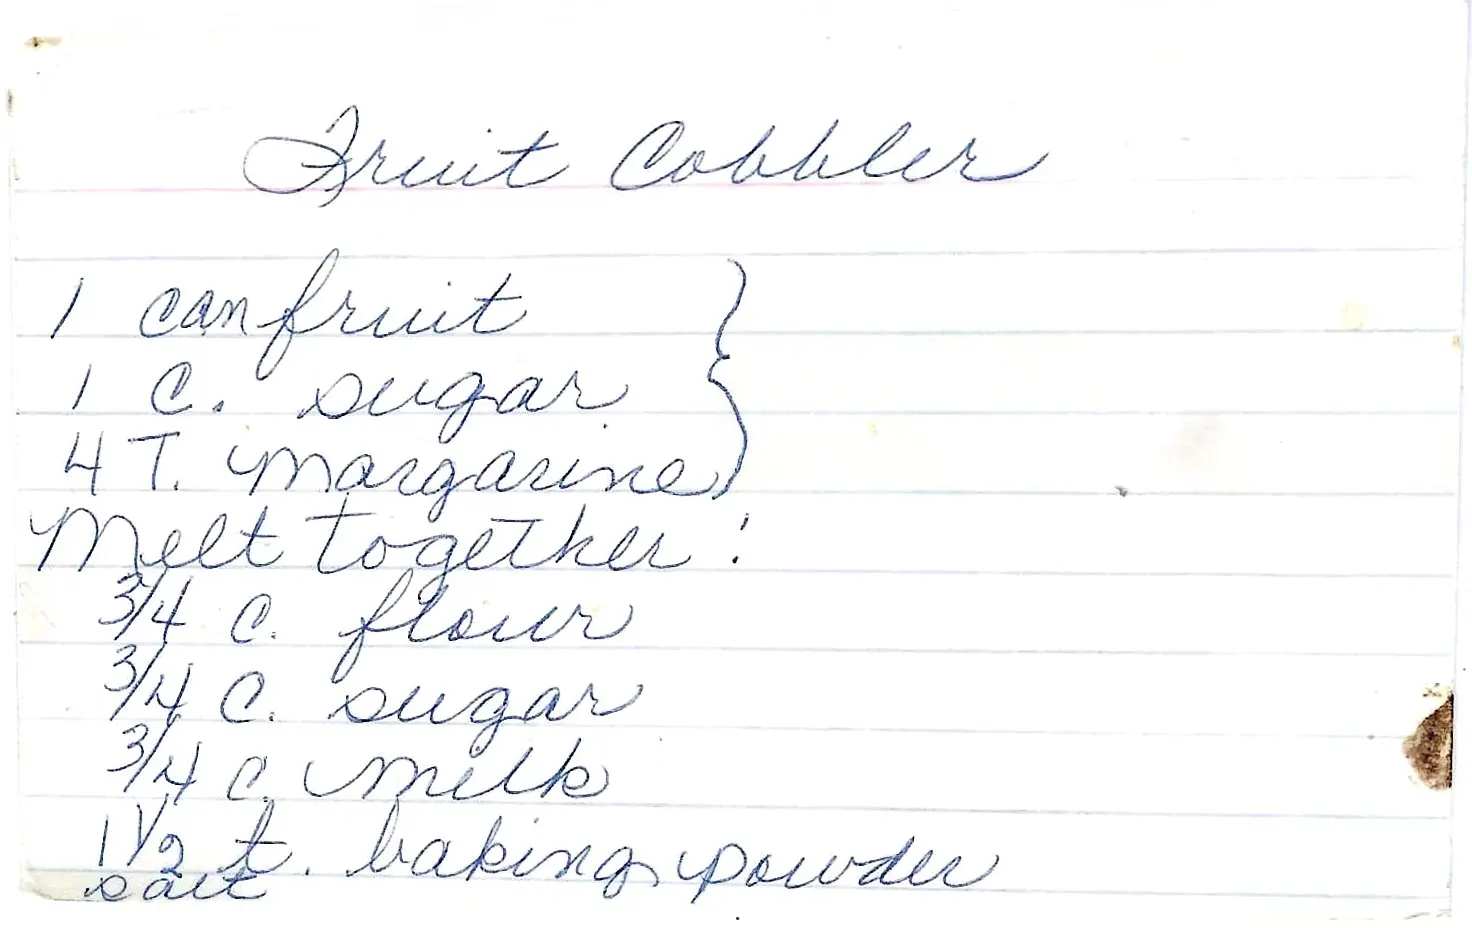 Fruit Cobbler
1 can fruit
1 C. sugar
4 T. margarine
Melt together:
3/4 C. flour
3/4 C. sugar
3/4 C. milk
1 1/2 t. baking powder
salt